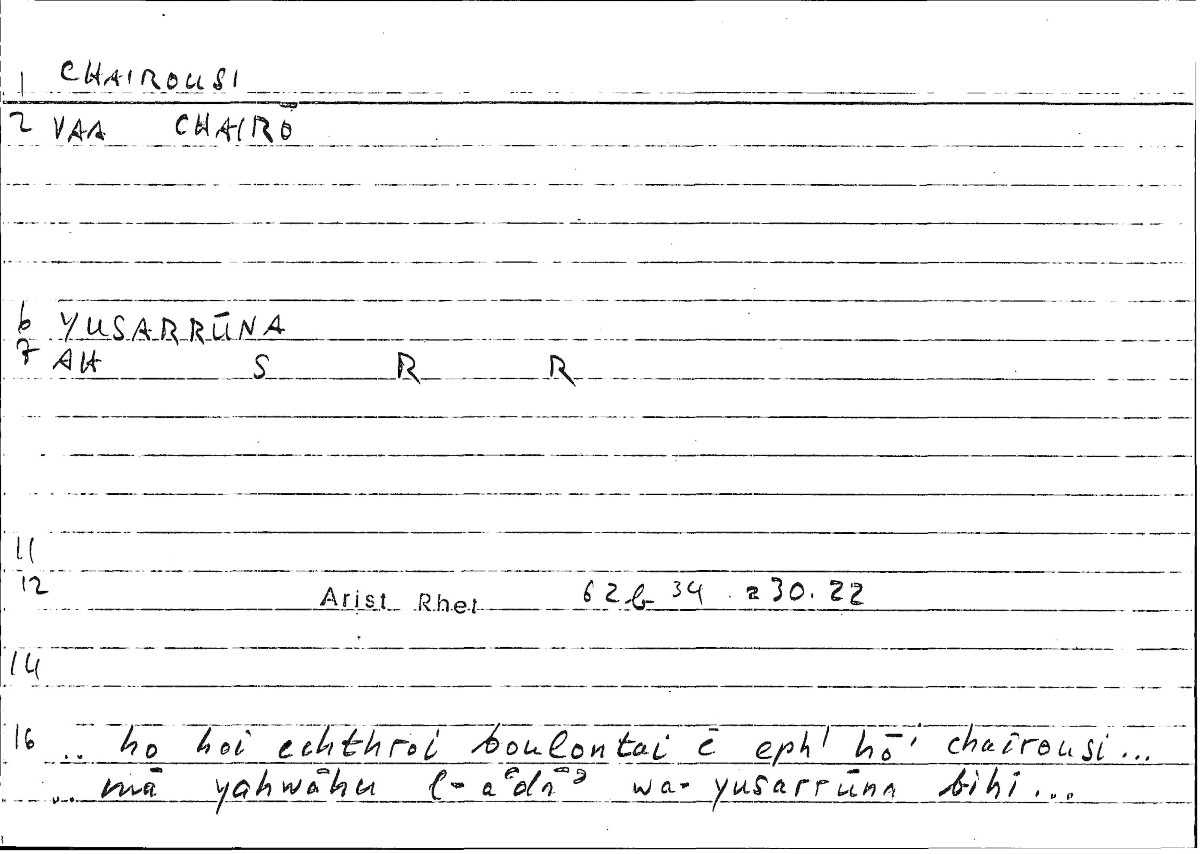 1 CHAIROUSI
2 VAA CHAIRŌ
6 YUSARRŪNA
7 AH S R R
11
12 Arist Rhet 62b34 = 30.22
14
16 .. ho hoi echthroi boulontai ē eph' hō' chairousi...
... mā yahwāhu l-aʿdāʾ wa-yusarrūna bihi...